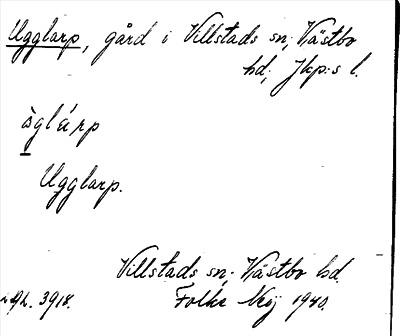 Ugglarp, gård i Villstads sn, Västbo
hd, Jkp:s l.
òglárp
Ugglarp.
Villstads sn, Västbo hd.
3918. Folke 1940.